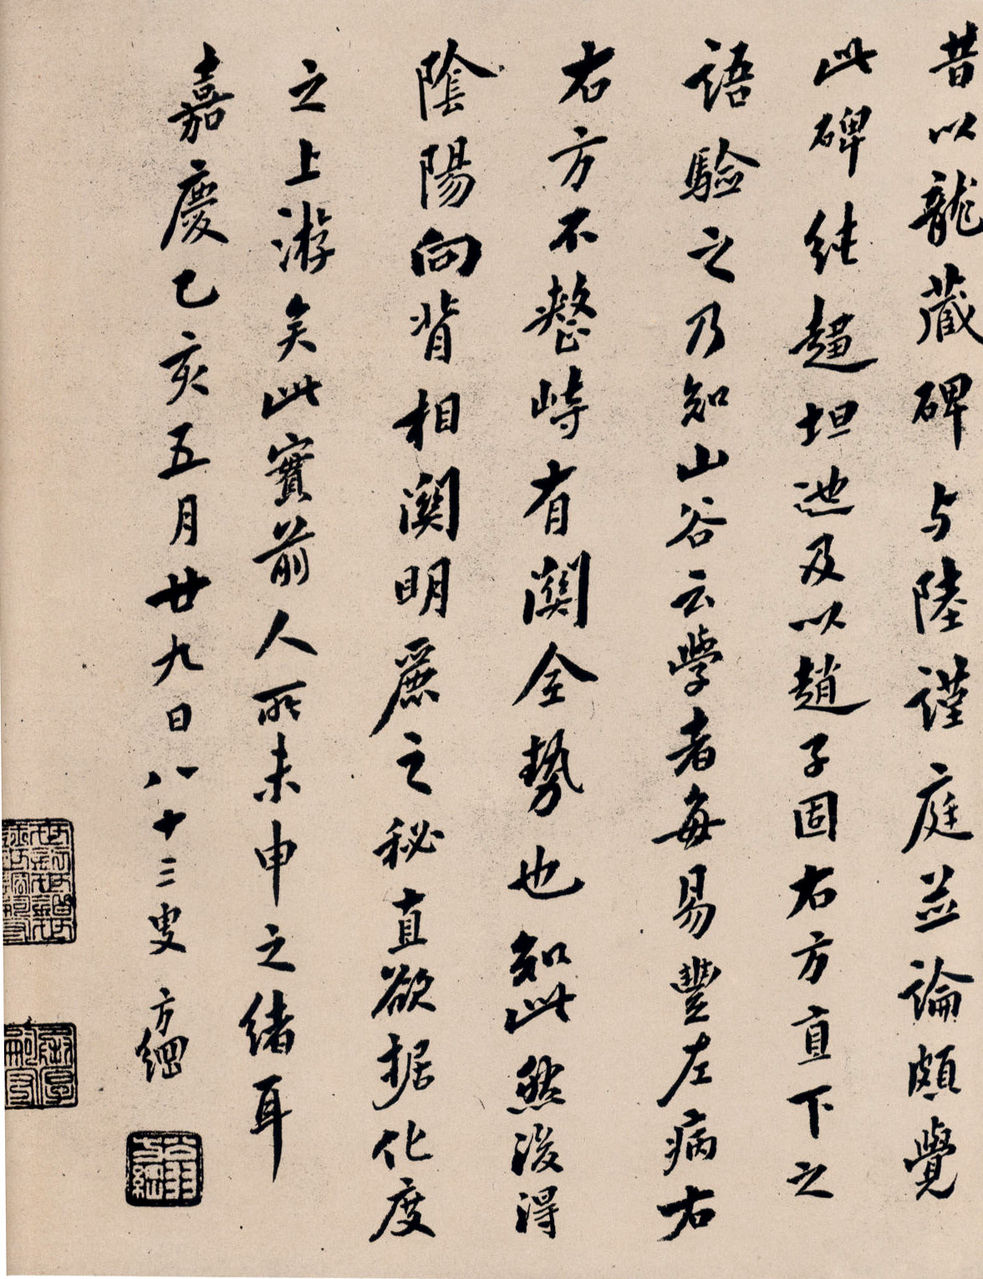 昔以龍藏碑与陸謹庭並論頗覺
此碑純趨坦迤及以趙子固右方直下之
語驗之乃知山谷云學者每易豐左病右
右方不整峙有闕全勢也知此然後得
陰陽向背相闕明麗之秘直欲据化度
之上游矣此實前人所未申之緒耳
嘉慶乙亥五月廿九日八十三叟方綱
翁方綱